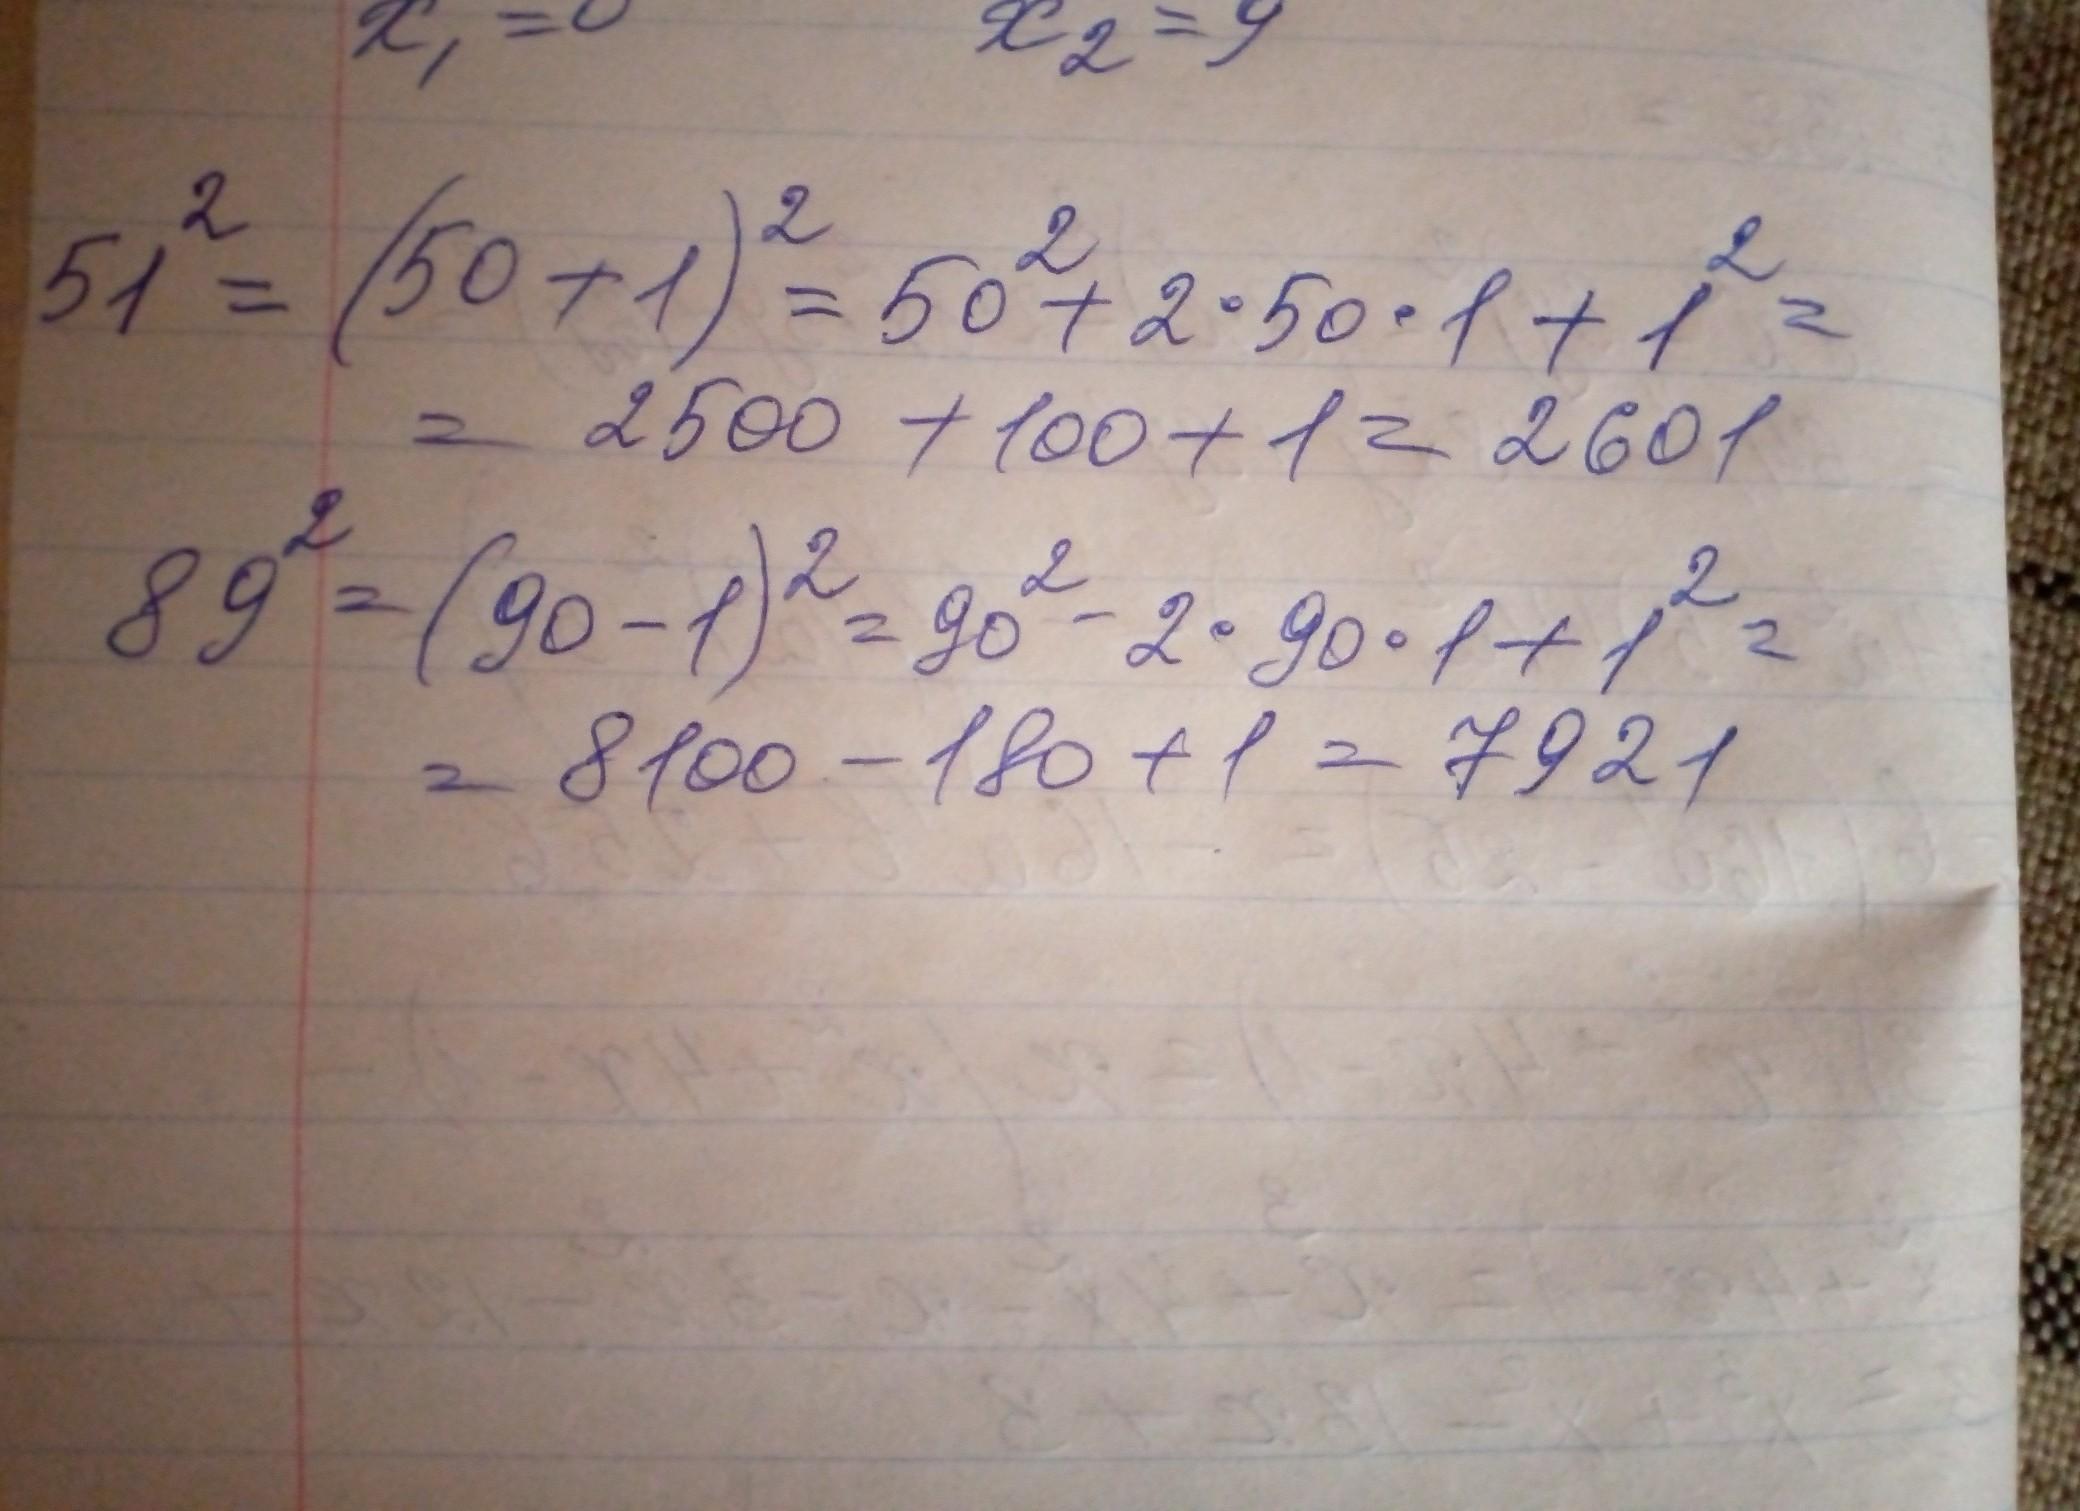 x₁ = 0 x₂ = 9
51² = (50 + 1)² = 50² + 2·50·1 + 1² =
= 2500 + 100 + 1 = 2601
89² = (90 - 1)² = 90² - 2·90·1 + 1² =
= 8100 - 180 + 1 = 7921